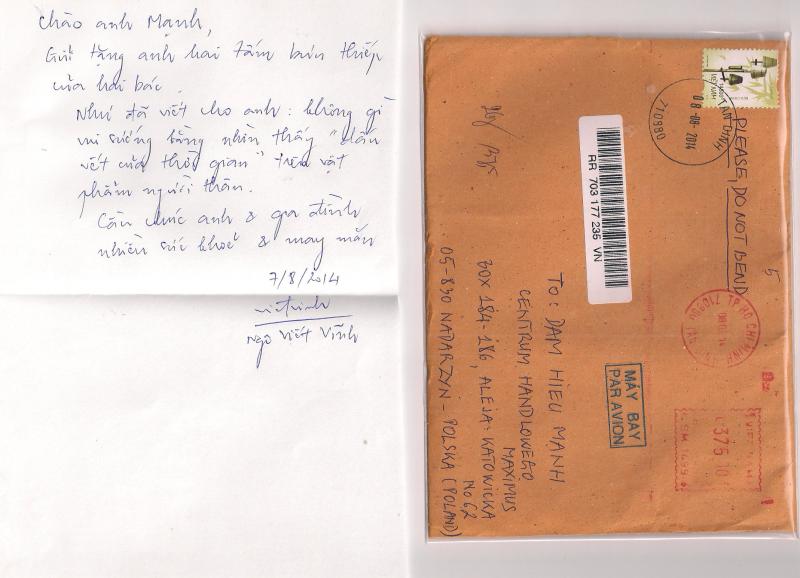 Chào anh Mạnh,
Gửi tặng anh hai tấm bưu thiếp
của hai bác.
Như đã viết cho anh: không gì
vui sướng bằng nhìn thấy "dấu
vết của thời gian" trên vật
phẩm người thân.
Cầu chúc anh & gia đình
nhiều sức khoẻ & may mắn
7/8/2014
Ngô Viết Vĩnh
VIETNAM
TAN DINH
08-08-2014
710980
PLEASE, DO NOT BEND
5
RR 703 177 235 VN
TP HO CHI MINH
MÁY BAY
PAR AVION
375 10
TO: DAM HIEU MANH
CENTRUM HANDLOWEGO
MAXIMUS
BOX 184-186, ALEJA: KATOWICKA
No 62
05-830 NADARZYN - POLSKA (POLAND)